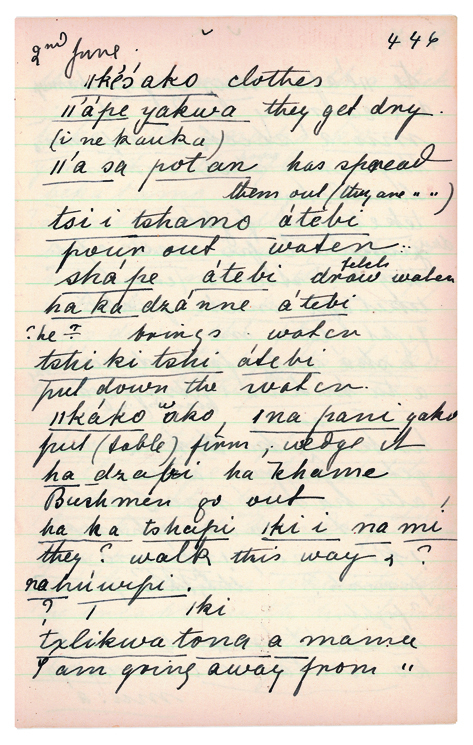 2nd June. 446
ǁkésako clothes
ǁápe yakwa they get dry.
(i ne kauka)
ǁ'a sa pot'an has spread
them out (they are " ")
tsi i tshamo átebi
pour out water
shápe átebi draw fetch water
ha ka dzánne átebi
? he ? brings water
tshi ki tshi átebi
put down the water.
ǁkáko ako, ina pani yako
put (table) firm, wedge it
ha dzabi ha khame
Bushmen go out
ha ka tshapi iki i na mi
they ? walk this way, ?
na húwipi.
? iki
txlikwa tona a mama
I am going away from "